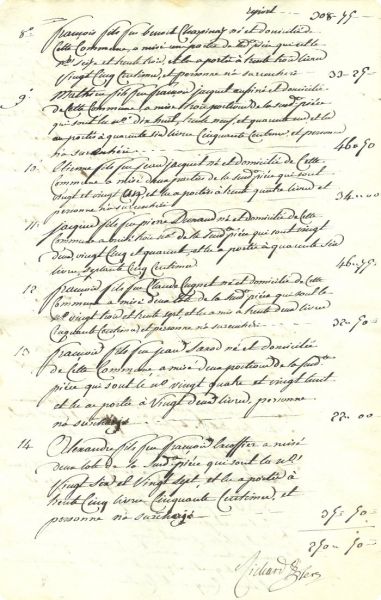 report 308-75
8° François fils feu benoit Chapuis né et domicilié de
Cette Commune a misé un portion de la dite pièce qui est le
n° seize et trente trois, et l'a portée à trente trois livres
Vingt Cinq Centimes, et personne n'a surenchéri 33-25
9° Mathieu fils feu françois jaquet aussi né et domicilié
de Cette Commune a misé trois portions de la sud. pièce
qui sont les n° dix huit, trente neuf, et quarante un, et les
a portées à quarante six livres Cinquante Centimes, et personne
n'a surenchéri 46=50
10 Etienne fils feu jean jaquet né et domicilié de Cette
Commune a misé deux portions de la sud. pièce qui sont
vingt et vingt et l'a portées à trente quatre livres et
personne n'a surenchéri 34=00
11 Jacques fils feu pierre Durand né et domicilié de Cette
Commune a misé trois n° de la sud. pièce qui sont vingt
deux vingt Cinq et quarante, et les a portés à quarante six
livres, Septante Cinq Centimes 46=75
12 françois fils feu Claude Cugnet né et domicilié de Cette
Commune a misé deux lots de la sud. pièce qui sont les
n° vingt trois et trente sept, et les a misés à trente deux livres
Cinquante Centimes et personne n'a surenchéri 32=50
13 François fils feu jean Jacod né et domicilié
de Cette Commune a misé deux portions de la sud.te
pièce qui sont les n° Vingt quatre et vingt huit
et les a portées à Vingt deux livres, personne
n'a surchargé 22=00
14 Alexandre fils feu françois lacoffier a misé
deux lots de la Sud. pièce qui sont les n°s
Vingt Six et Vingt Sept, et les a portés à
trente Cinq livres Cinquante Centimes, et
personne n'a surchargé
35=50
250=50
Richard